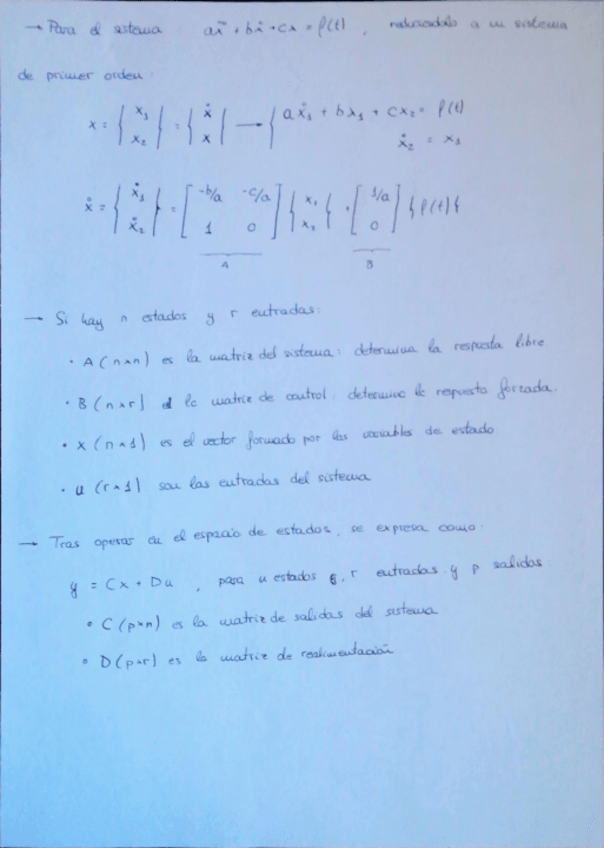 → Para el sistema aẍ + bẋ + cx = f(t), reduciendolo a un sistema
de primer orden:
x = { x₁ x₂ } = { ẋ x } → { aẋ₁ + bx₁ + cx₂ = f(t) ẋ₂ = x₁
ẋ = { ẋ₁ ẋ₂ } = [ -b/a -c/a 1 0 ] { x₁ x₂ } + [ 1/a 0 ] { f(t) }
A B
→ Si hay n estados y r entradas:
· A (n×n) es la matriz del sistema: determina la respuesta libre
· B (n×r) la matriz de control: determina la respuesta forzada.
· x (n×1) es el vector formado por las variables de estado
· u (r×1) son las entradas del sistema
→ Tras operar en el espacio de estados, se expresa como:
y = Cx + Du, para n estados, r entradas y p salidas:
• C (p×n) es la matriz de salidas del sistema
• D (p×r) es la matriz de realimentación